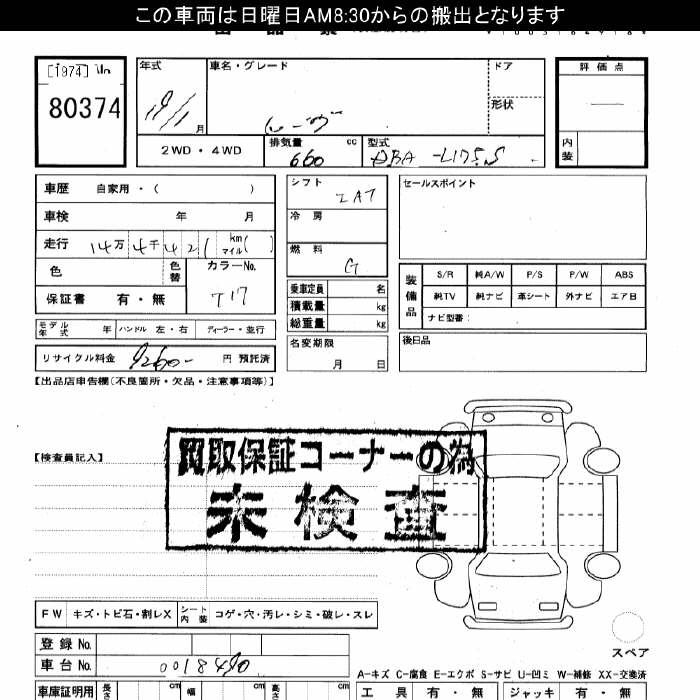 この車両は日曜日AM8:30からの搬出となります
[1974]
80374
年式
月
車名・グレード
ムーヴ
ドア
形状
評価点
内装
2WD・4WD
排気量
660
cc
型式
DBA-L175S
車歴 自家用・( )
車検 年 月
走行 14万4千421 km マイル( )
色
色替
カラーNo.
T17
保証書 有・無
シフト
IAT
冷房
燃料
G
乗車定員 名
積載量 kg
総重量 kg
セールスポイント
装備品
S/R 純A/W P/S P/W ABS
純TV 純ナビ 革シート 外ナビ エアB
ナビ型番:
モデル年式 年 ハンドル 左・右 ディーラー・並行
リサイクル料金 9260- 円 預託済
名変期限
月 日
後日品
【出品店申告欄(不良箇所・欠品・注意事項等)】
【検査員記入】
買取保証コーナーの為
未検査
FW キズ・トビ石・割レX シート内装 コゲ・穴・汚レ・シミ・破レ・スレ
登録No.
車台No. 0018490
スペア
A-キズ C-腐食 E-エクボ S-サビ U-凹ミ W-補修 XX-交換済
車庫証明用 長さ cm 幅 cm 高さ cm
工具 有・無 ジャッキ 有・無